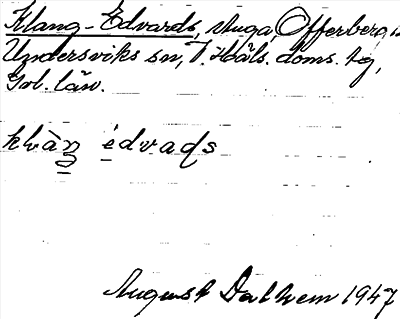 Klang-Edvards, stuga, Offerberg,
Undersviks sn, V. Häls. doms. tg,
Gvl. län.
klàŋ édvads
August Dalhem 1947